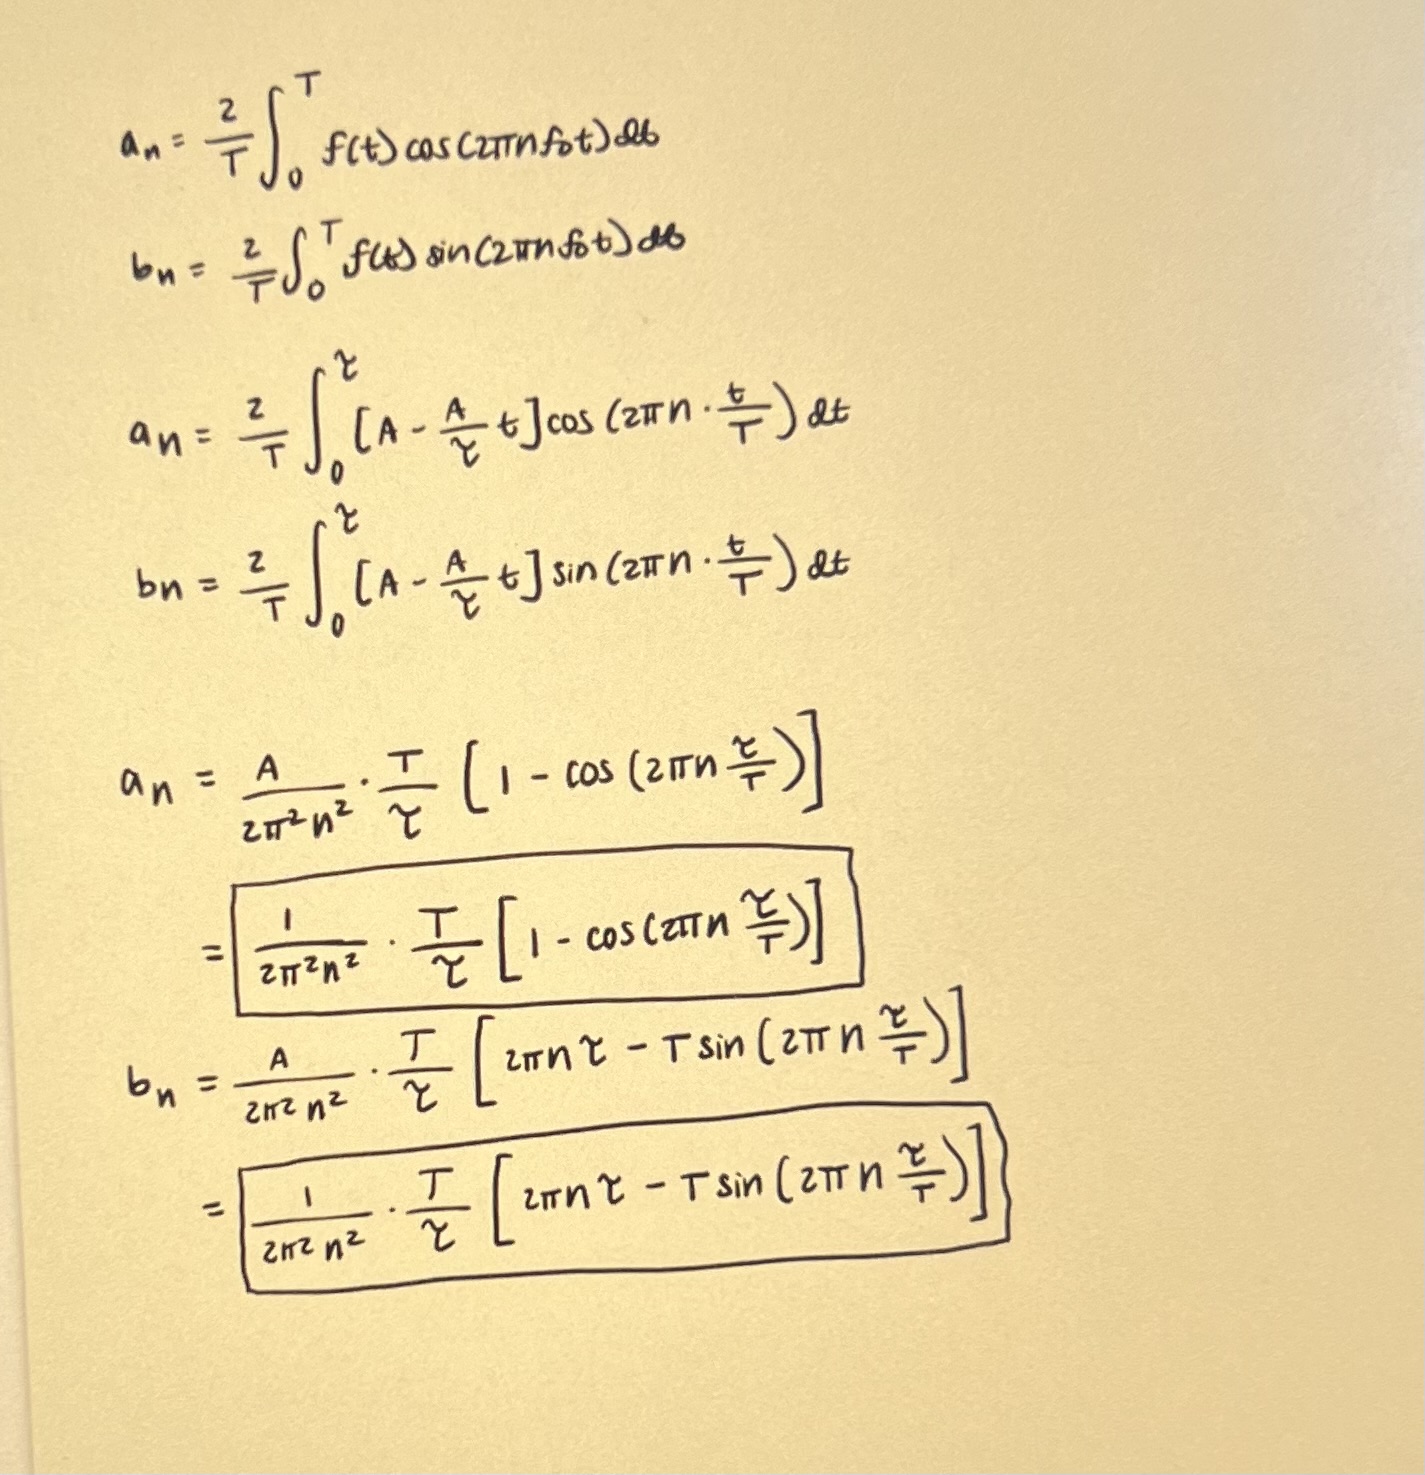 aₙ = 2/T ∫₀ᵀ f(t) cos(2πnf₀t)dt
bₙ = 2/T ∫₀ᵀ f(t) sin(2πnf₀t)dt
aₙ = 2/T ∫₀^τ [A - A/τ t] cos(2πn · t/T) dt
bₙ = 2/T ∫₀^τ [A - A/τ t] sin(2πn · t/T) dt
aₙ = A/(2π²n²) · T/τ [1 - cos(2πn τ/T)]
= 1/(2π²n²) · T/τ [1 - cos(2πn τ/T)]
bₙ = A/(2π²n²) · T/τ [2πnτ - T sin(2πn τ/T)]
= 1/(2π²n²) · T/τ [2πnτ - T sin(2πn τ/T)]